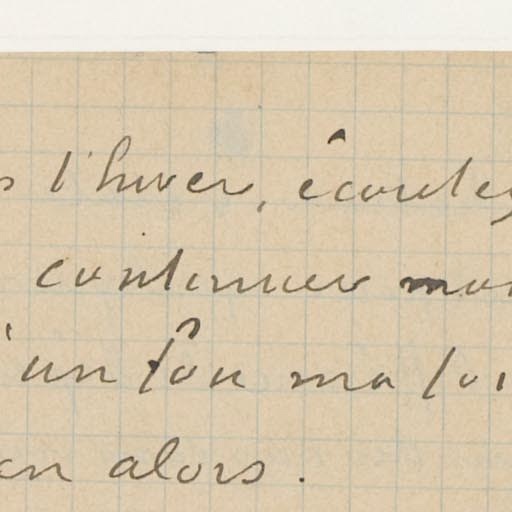 l'hiver, écoutez
continuer mon
un fou ma foi
alors.